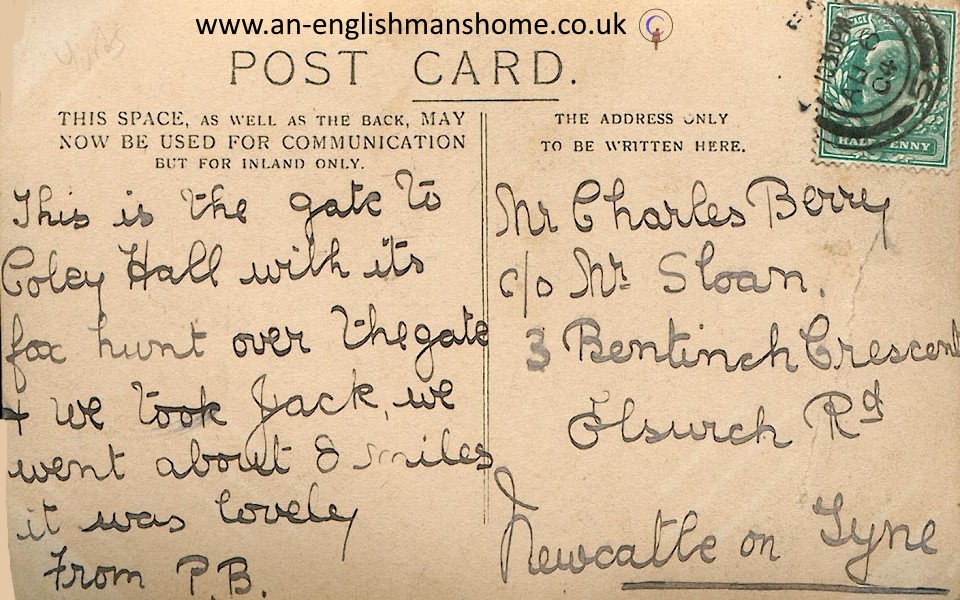 www.an-englishmanshome.co.uk
POST CARD.
THIS SPACE, AS WELL AS THE BACK, MAY
NOW BE USED FOR COMMUNICATION
BUT FOR INLAND ONLY.
This is the gate to
Coley Hall with its
fox hunt over the gate
+ we took Jack, we
went about 8 miles
it was lovely
From P.B.
THE ADDRESS ONLY
TO BE WRITTEN HERE.
Mr Charles Berry
c/o Mr. Sloan.
3 Bentinch Crescent
Elswich Rd
Newcatle on Tyne
HALF PENNY